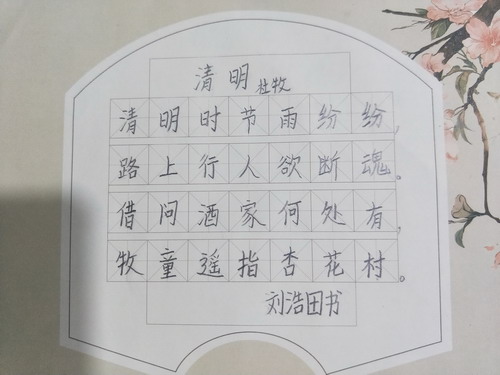 清明 杜牧
清明时节雨纷纷，
路上行人欲断魂。
借问酒家何处有，
牧童遥指杏花村。
刘浩田书